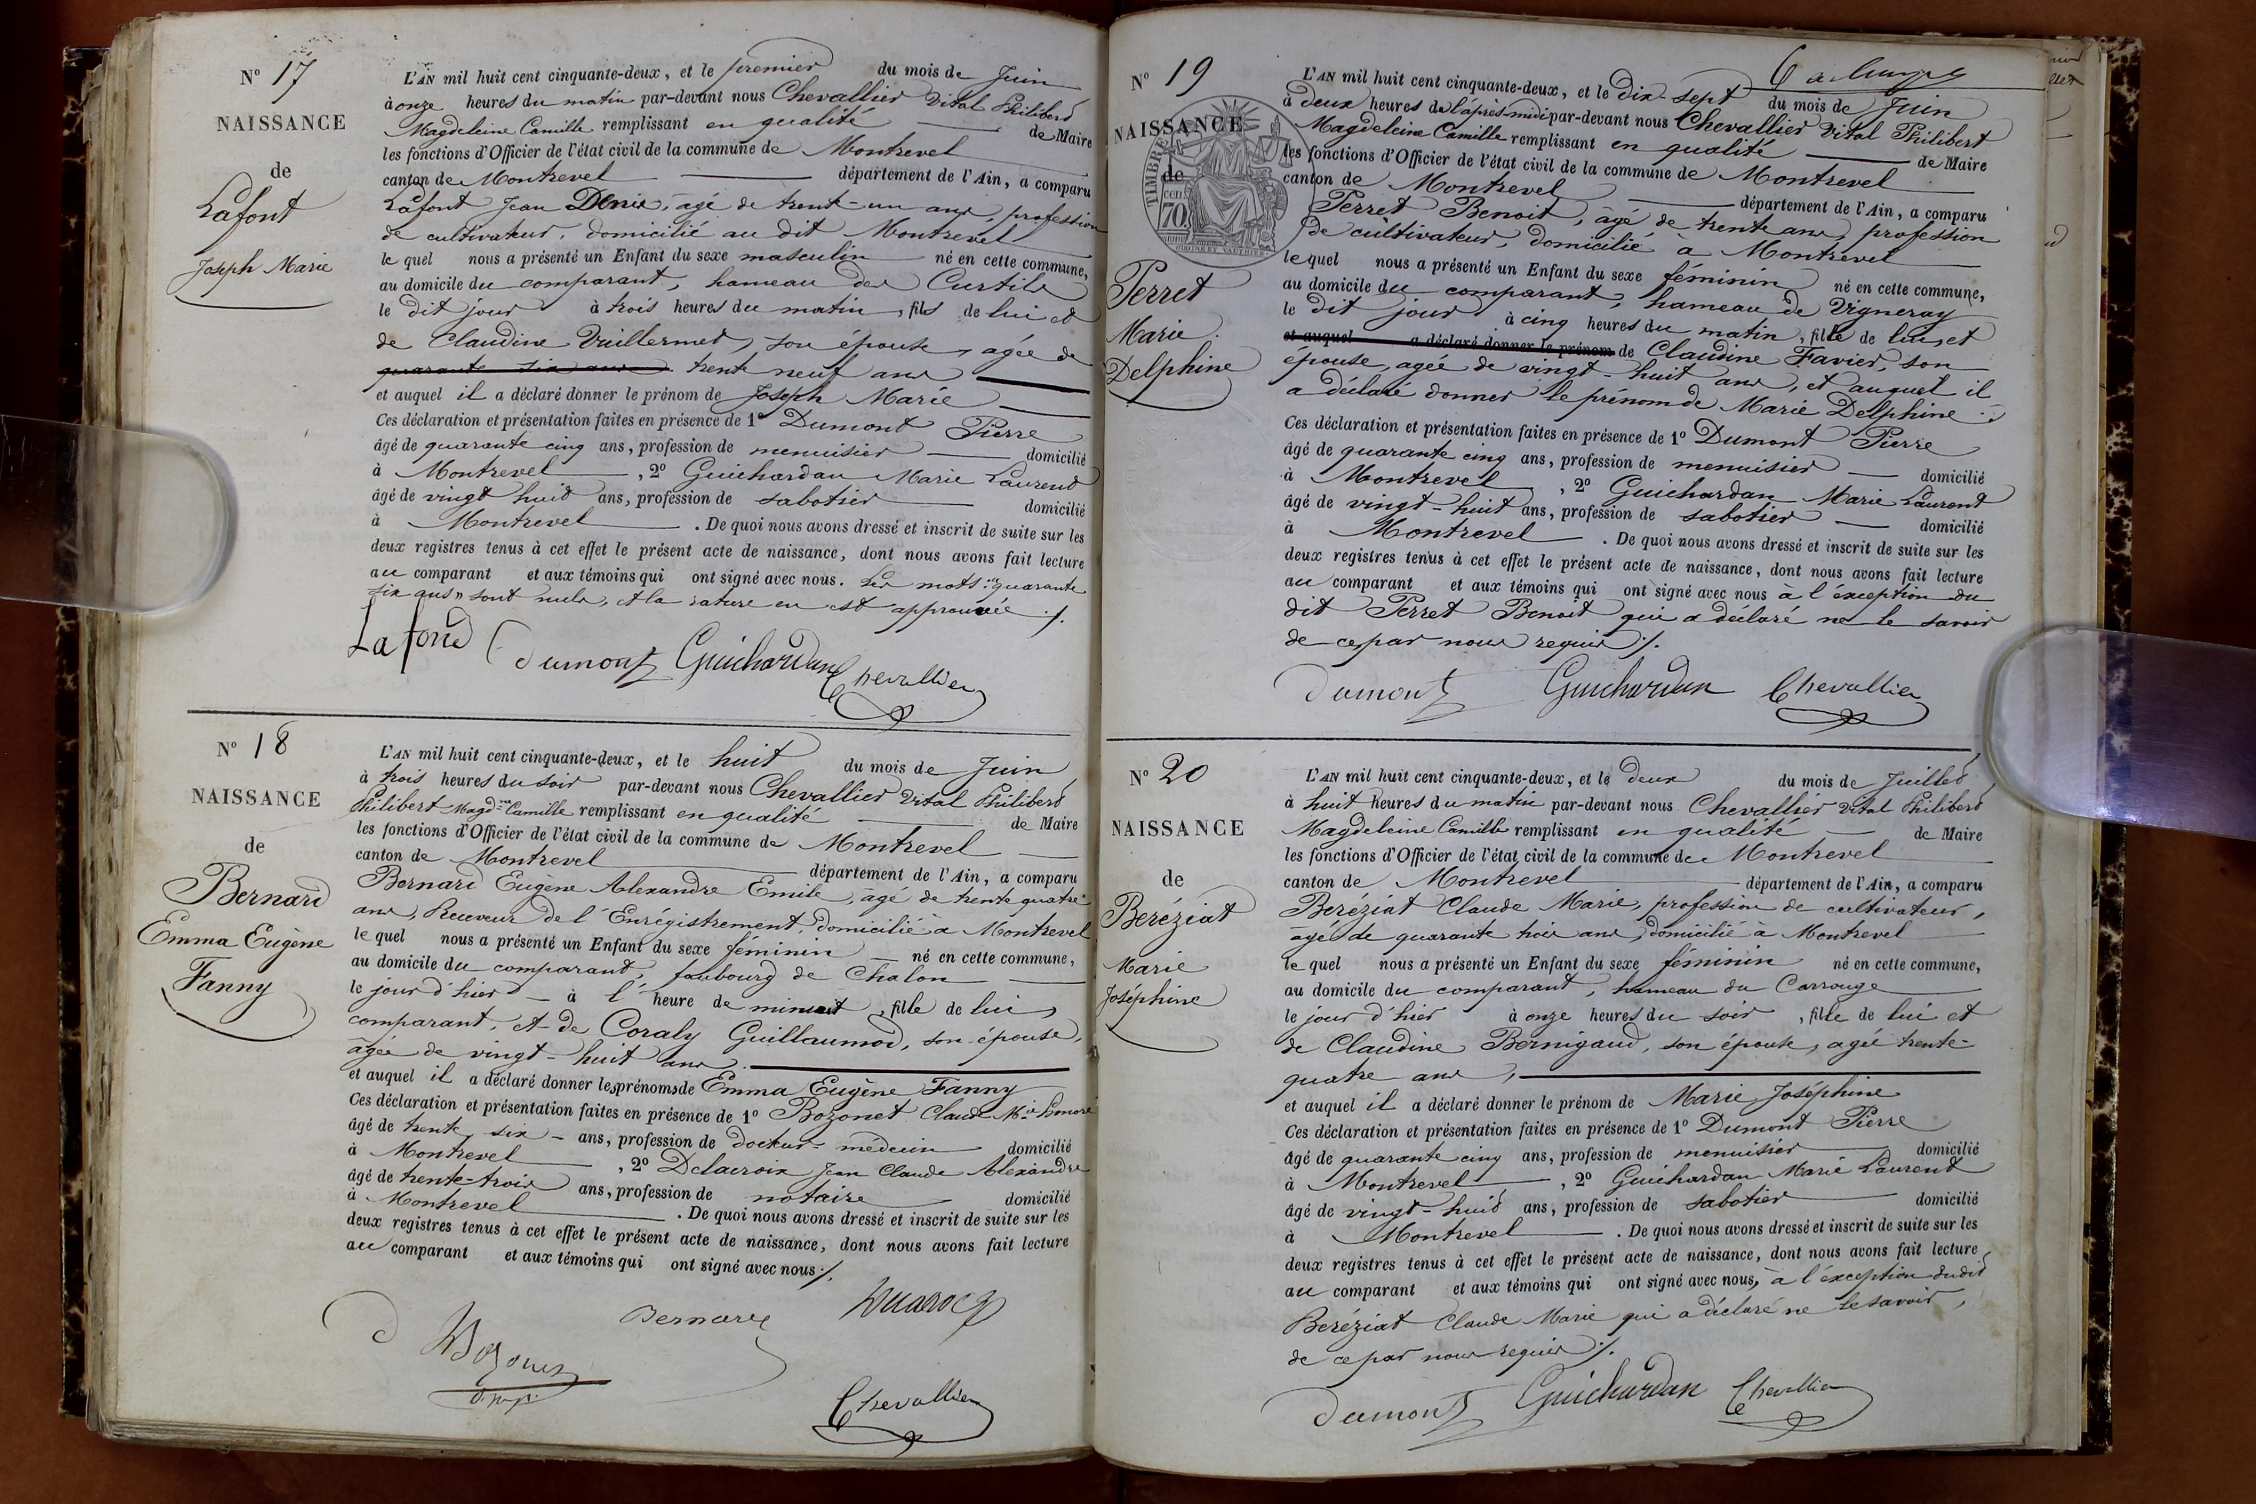 N° 17
NAISSANCE
de
Lafont
Joseph Marie
L'AN mil huit cent cinquante-deux, et le premier du mois de Juin
à onze heures du matin par-devant nous Chevallier Vital Philibert
Magdeleine Camille remplissant en qualité de Maire
les fonctions d'Officier de l'état civil de la commune de Montrevel
canton de Montrevel département de l'Ain, a comparu
Lafont Jean Denis, agé de trent-un ans, profession
de cultivateur, domicilié au dit Montrevel
le quel nous a présenté un Enfant du sexe masculin né en cette commune,
au domicile du comparant, hameau des Curtils
le dit jour à trois heures du matin, fils de lui et
de Claudine Vuillermet, son épouse, agée de
quarante six ans trente neuf ans
et auquel il a déclaré donner le prénom de Joseph Marie
Ces déclaration et présentation faites en présence de 1° Dumont Pierre
âgé de quarante cinq ans, profession de menuisier domicilié
à Montrevel, 2° Guichardan Marie Laurent
âgé de vingt huit ans, profession de sabotier domicilié
à Montrevel. De quoi nous avons dressé et inscrit de suite sur les
deux registres tenus à cet effet le présent acte de naissance, dont nous avons fait lecture
au comparant et aux témoins qui ont signé avec nous. Les mots "quarante
six ans" sont nuls, et la rature en est approuvée ./.
Lafond Dumont Guichardan Chevallier
N° 18
NAISSANCE
de
Bernard
Emma Eugène
Fanny
L'AN mil huit cent cinquante-deux, et le huit du mois de Juin
à trois heures du soir par-devant nous Chevallier Vital Philibert
Philibert Magd.ne Camille remplissant en qualité de Maire
les fonctions d'Officier de l'état civil de la commune de Montrevel
canton de Montrevel département de l'Ain, a comparu
Bernard Eugène Alexandre Emile, âgé de trente quatre
ans, Receveur de l'Enrégistrement, domicilié à Montrevel
le quel nous a présenté un Enfant du sexe féminin né en cette commune,
au domicile du comparant, faubourg de Chalon
le jour d'hier à l'heure de minuit, fille de lui
comparant, et de Coraly Guillaumod, son épouse,
âgée de vingt-huit ans
et auquel il a déclaré donner les prénoms de Emma Eugène Fanny
Ces déclaration et présentation faites en présence de 1° Bozonet Claude M.ie Honoré
âgé de trente six ans, profession de docteur-médecin domicilié
à Montrevel, 2° Delacroix Jean Claude Alexandre
âgé de trente-trois ans, profession de notaire domicilié
à Montrevel. De quoi nous avons dressé et inscrit de suite sur les
deux registres tenus à cet effet le présent acte de naissance, dont nous avons fait lecture
au comparant et aux témoins qui ont signé avec nous ./.
Bernard
Bozonet
d.m.p.
Chevallier
N° 19
NAISSANCE
de
TIMBRE
70
Perret
Marie
Delphine
L'AN mil huit cent cinquante-deux, et le dix-sept du mois de Juin
à deux heures de l'après-midi par-devant nous Chevallier Vital Philibert
Magdeleine Camille remplissant en qualité de Maire
les fonctions d'Officier de l'état civil de la commune de Montrevel
canton de Montrevel département de l'Ain, a comparu
Perret Benoit, âgé de trente ans, profession
de cultivateur, domicilié a Montrevel
le quel nous a présenté un Enfant du sexe féminin né en cette commune,
au domicile du comparant, hameau de Vigneray
le dit jour à cinq heures du matin, fille de lui, et
et auquel a déclaré donner le prénom de Claudine Favier, son
épouse, agée de vingt-huit ans, et auquel il
a déclaré donner le prénom de Marie Delphine.
Ces déclaration et présentation faites en présence de 1° Dumont Pierre
âgé de quarante cinq ans, profession de menuisier domicilié
à Montrevel, 2° Guichardan Marie Laurent
âgé de vingt-huit ans, profession de sabotier domicilié
à Montrevel. De quoi nous avons dressé et inscrit de suite sur les
deux registres tenus à cet effet le présent acte de naissance, dont nous avons fait lecture
au comparant et aux témoins qui ont signé avec nous à l'éxception du
dit Perret Benoit qui a déclaré ne le savoir
de ce par nous requis ./.
Dumont Guichardan Chevallier
N° 20
NAISSANCE
de
Beréziat
Marie
Joséphine
L'AN mil huit cent cinquante-deux, et le deux du mois de Juillet
à huit heures du matin par-devant nous Chevallier Vital Philibert
Magdeleine Camille remplissant en qualité de Maire
les fonctions d'Officier de l'état civil de la commune de Montrevel
canton de Montrevel département de l'Ain, a comparu
Beréziat Claude Marie, profession de cultivateur,
âgé de quarante trois ans, domicilié à Montrevel
le quel nous a présenté un Enfant du sexe féminin né en cette commune,
au domicile du comparant, hameau du Carrouge
le jour d'hier à onze heures du soir, fille de lui et
de Claudine Bernigaud, son épouse, agée trente-
quatre ans,
et auquel il a déclaré donner le prénom de Marie Joséphine
Ces déclaration et présentation faites en présence de 1° Dumont Pierre
âgé de quarante cinq ans, profession de menuisier domicilié
à Montrevel, 2° Guichardan Marie Laurent
âgé de vingt-huit ans, profession de sabotier domicilié
à Montrevel. De quoi nous avons dressé et inscrit de suite sur les
deux registres tenus à cet effet le présent acte de naissance, dont nous avons fait lecture
au comparant et aux témoins qui ont signé avec nous, à l'éxception dudit
Beréziat Claude Marie qui a déclaré ne le savoir,
de ce par nous requis ./.
Dumont Guichardan Chevallier